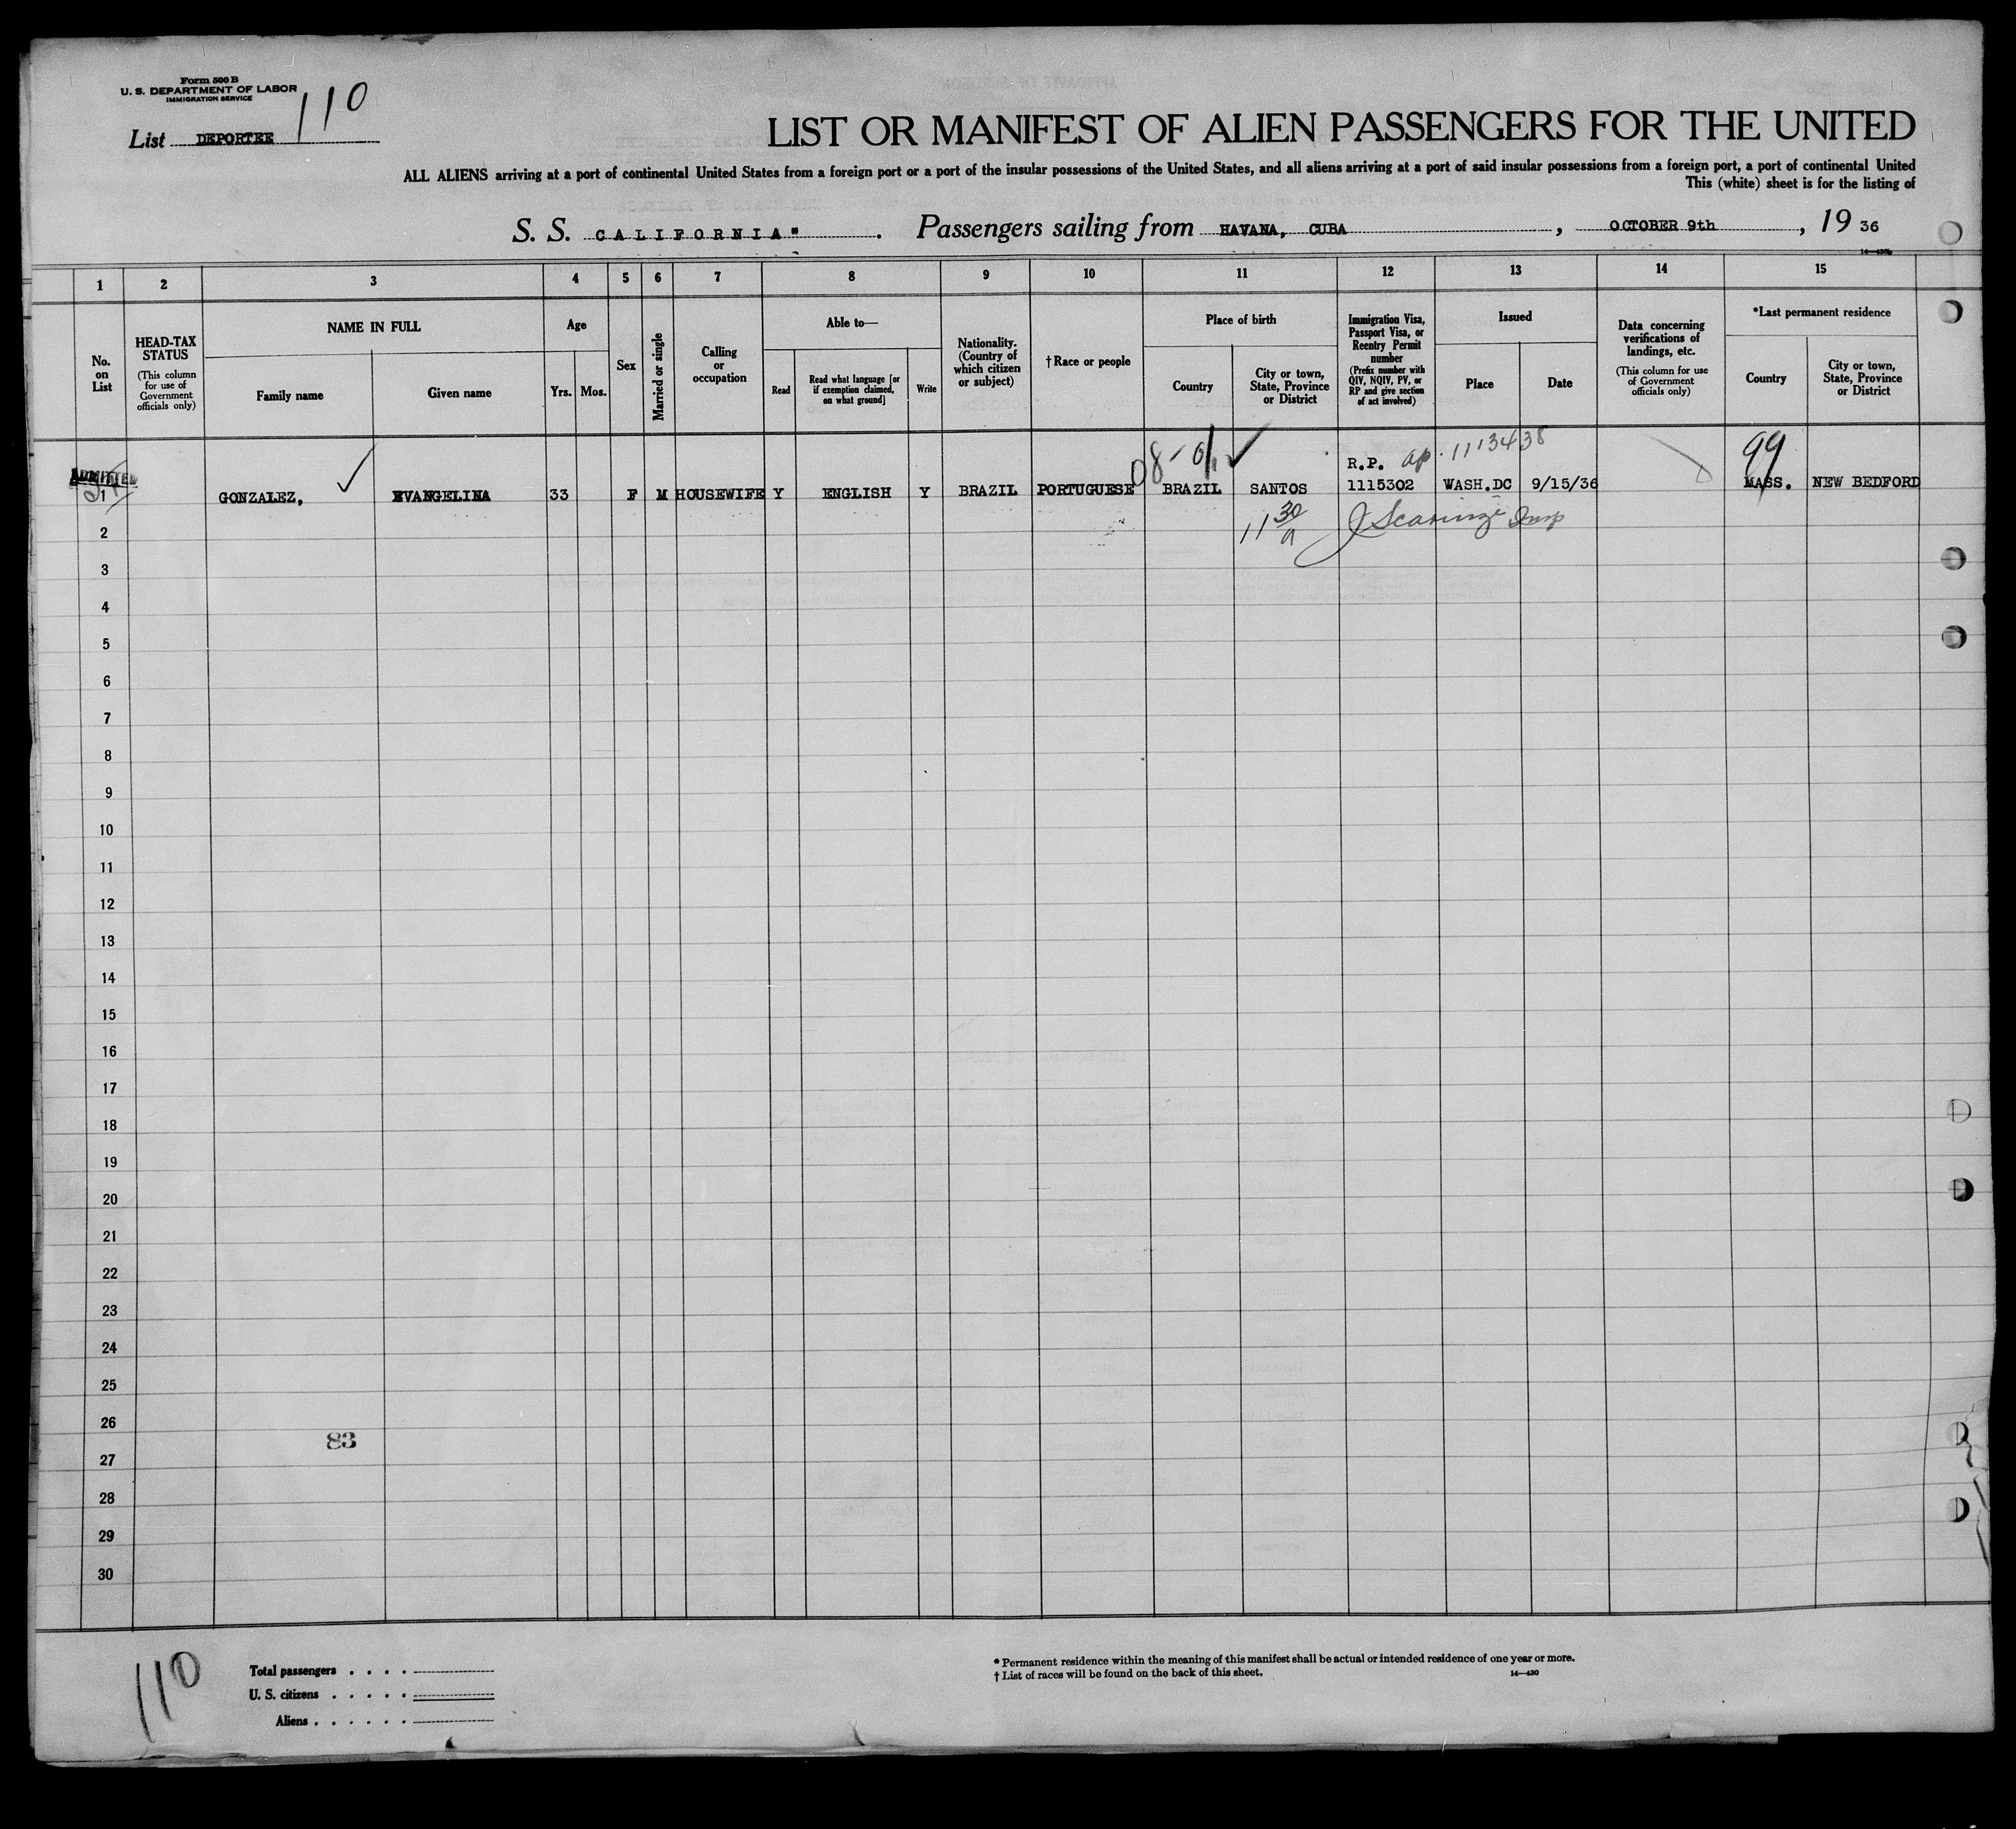 Form 500 B
U. S. DEPARTMENT OF LABOR
IMMIGRATION SERVICE
List DEPORTEE 110
LIST OR MANIFEST OF ALIEN PASSENGERS FOR THE UNITED
ALL ALIENS arriving at a port of continental United States from a foreign port or a port of the insular possessions of the United States, and all aliens arriving at a port of said insular possessions from a foreign port, a port of continental United
This (white) sheet is for the listing of
S. S. CALIFORNIA" . Passengers sailing from HAVANA, CUBA , OCTOBER 9th , 19 36
14—430b
1 2 3 4 5 6 7 8 9 10 11 12 13 14 15
No. on List
HEAD-TAX STATUS
(This column for use of Government officials only)
NAME IN FULL
Family name
Given name
Age
Yrs. Mos.
Sex
Married or single
Calling or occupation
Able to—
Read
Read what language [or if exemption claimed, on what ground]
Write
Nationality. (Country of which citizen or subject)
†Race or people
Place of birth
Country
City or town, State, Province or District
Immigration Visa, Passport Visa, or Reentry Permit number
(Prefix number with QIV, NQIV, PV, or RP and give section of act involved)
Issued
Place
Date
Data concerning verifications of landings, etc.
(This column for use of Government officials only)
*Last permanent residence
Country
City or town, State, Province or District
ADMITTED
R.P. ap. 1113438
99
1 GONZALEZ, EVANGELINA 33 F M HOUSEWIFE Y ENGLISH Y BRAZIL PORTUGUESE BRAZIL SANTOS 1115302 WASH.DC 9/15/36 MASS. NEW BEDFORD
11 30/a
2
3
4
5
6
7
8
9
10
11
12
13
14
15
16
17
18
19
20
21
22
23
24
25
26
83
27
28
29
30
110
Total passengers . . . .
U. S. citizens . . . . .
Aliens . . . . . .
* Permanent residence within the meaning of this manifest shall be actual or intended residence of one year or more.
† List of races will be found on the back of this sheet. 14—430